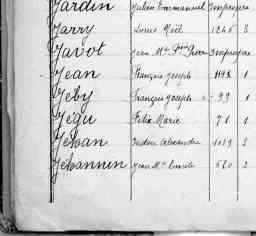 Jardin Julien Emmanuel Impropre
Jarry Louis Noël 1265 3
Javot Jean Mie Pierre Impropre
Jean François Joseph 1198 1
Jéby François Joseph 99 1
Jégu Félix Marie 71 1
Jéhan Isidore Alexandre 1029 3
Jéhannin Jean Mie Emile 520 2